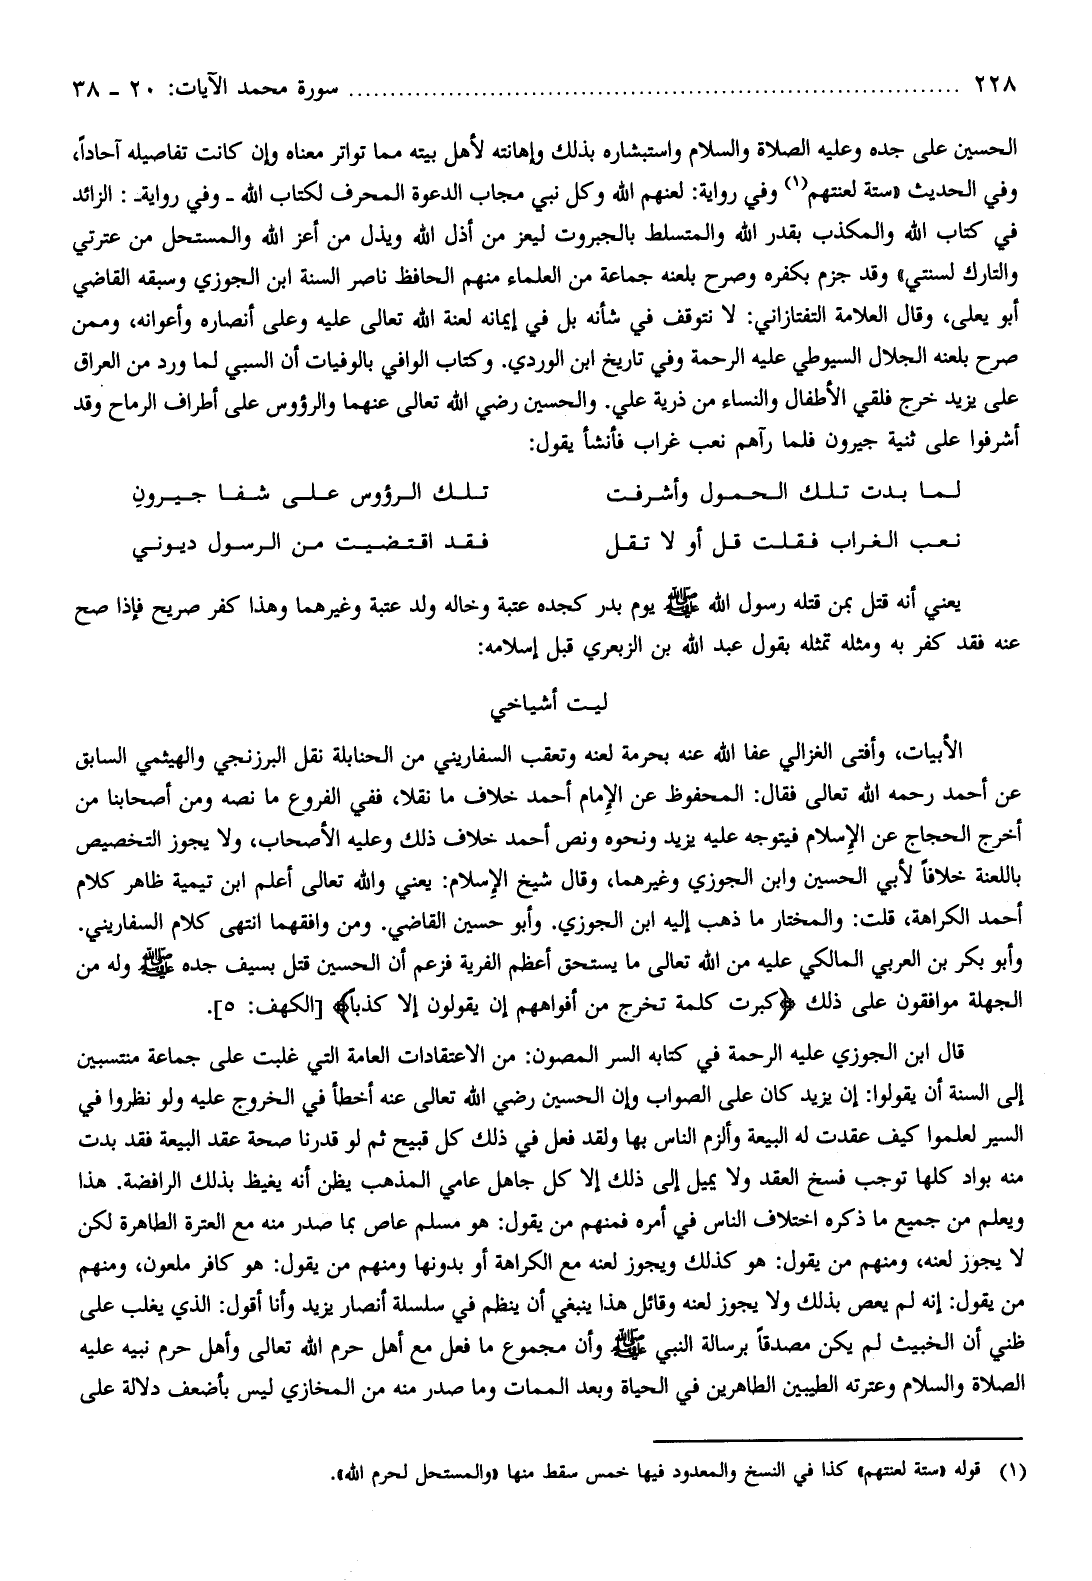 ٢٢٨ ........................................ سورة محمد الآيات: ٢٠ ـ ٣٨
الحسين على جده وعليه الصلاة والسلام واستبشاره بذلك وإهانته لأهل بيته مما تواتر معناه وإن كانت تفاصيله آحاداً،
وفي الحديث «ستة لعنتهم(١) وفي رواية: لعنهم الله وكل نبي مجاب الدعوة المحرف لكتاب الله ـ وفي رواية ـ : الزائد
في كتاب الله والمكذب بقدر الله والمتسلط بالجبروت ليعز من أذل الله ويذل من أعز الله والمستحل من عترتي
والتارك لسنتي» وقد جزم بكفره وصرح بلعنه جماعة من العلماء منهم الحافظ ناصر السنة ابن الجوزي وسبقه القاضي
أبو يعلى، وقال العلامة التفتازاني: لا نتوقف في شأنه بل في إيمانه لعنة الله تعالى عليه وعلى أنصاره وأعوانه، وممن
صرح بلعنه الجلال السيوطي عليه الرحمة وفي تاريخ ابن الوردي. وكتاب الوافي بالوفيات أن السبي لما ورد من العراق
على يزيد خرج فلقي الأطفال والنساء من ذرية علي. والحسين رضي الله تعالى عنهما والرؤوس على أطراف الرماح وقد
أشرفوا على ثنية جيرون فلما رآهم نعب غراب فأنشأ يقول:
لما بدت تلك الحمول وأشرفت تلك الرؤوس على شفا جيرونِ
نعب الغراب فقلت قل أو لا تقل فقد اقتضيت من الرسول ديوني
يعني أنه قتل بمن قتله رسول الله ﷺ يوم بدر كجده عتبة وخاله ولد عتبة وغيرهما وهذا كفر صريح فإذا صح
عنه فقد كفر به ومثله تمثله بقول عبد الله بن الزبعري قبل إسلامه:
ليت أشياخي
الأبيات، وأفتى الغزالي عفا الله عنه بحرمة لعنه وتعقب السفاريني من الحنابلة نقل البرزنجي والهيثمي السابق
عن أحمد رحمه الله تعالى فقال: المحفوظ عن الإمام أحمد خلاف ما نقلا، ففي الفروع ما نصه ومن أصحابنا من
أخرج الحجاج عن الإسلام فيتوجه عليه يزيد ونحوه ونص أحمد خلاف ذلك وعليه الأصحاب، ولا يجوز التخصيص
باللعنة خلافاً لأبي الحسين وابن الجوزي وغيرهما، وقال شيخ الإسلام: يعني والله تعالى أعلم ابن تيمية ظاهر كلام
أحمد الكراهة، قلت: والمختار ما ذهب إليه ابن الجوزي. وأبو حسين القاضي. ومن وافقهما انتهى كلام السفاريني.
وأبو بكر بن العربي المالكي عليه من الله تعالى ما يستحق أعظم الفرية فزعم أن الحسين قتل بسيف جده ﷺ وله من
الجهلة موافقون على ذلك ﴿كبرت كلمة تخرج من أفواههم إن يقولون إلا كذباً﴾ [الكهف: ٥].
قال ابن الجوزي عليه الرحمة في كتابه السر المصون: من الاعتقادات العامة التي غلبت على جماعة منتسبين
إلى السنة أن يقولوا: إن يزيد كان على الصواب وإن الحسين رضي الله تعالى عنه أخطأ في الخروج عليه ولو نظروا في
السير لعلموا كيف عقدت له البيعة وألزم الناس بها ولقد فعل في ذلك كل قبيح ثم لو قدرنا صحة عقد البيعة فقد بدت
منه بواد كلها توجب فسخ العقد ولا يميل إلى ذلك إلا كل جاهل عامي المذهب يظن أنه يغيظ بذلك الرافضة. هذا
ويعلم من جميع ما ذكره اختلاف الناس في أمره فمنهم من يقول: هو مسلم عاص بما صدر منه مع العترة الطاهرة لكن
لا يجوز لعنه، ومنهم من يقول: هو كذلك ويجوز لعنه مع الكراهة أو بدونها ومنهم من يقول: هو كافر ملعون، ومنهم
من يقول: إنه لم يعص بذلك ولا يجوز لعنه وقائل هذا ينبغي أن ينظم في سلسلة أنصار يزيد وأنا أقول: الذي يغلب على
ظني أن الخبيث لم يكن مصدقاً برسالة النبي ﷺ وأن مجموع ما فعل مع أهل حرم الله تعالى وأهل حرم نبيه عليه
الصلاة والسلام وعترته الطيبين الطاهرين في الحياة وبعد الممات وما صدر منه من المخازي ليس بأضعف دلالة على
(١) قوله «ستة لعنتهم» كذا في النسخ والمعدود فيها خمس سقط منها «والمستحل لحرم الله».